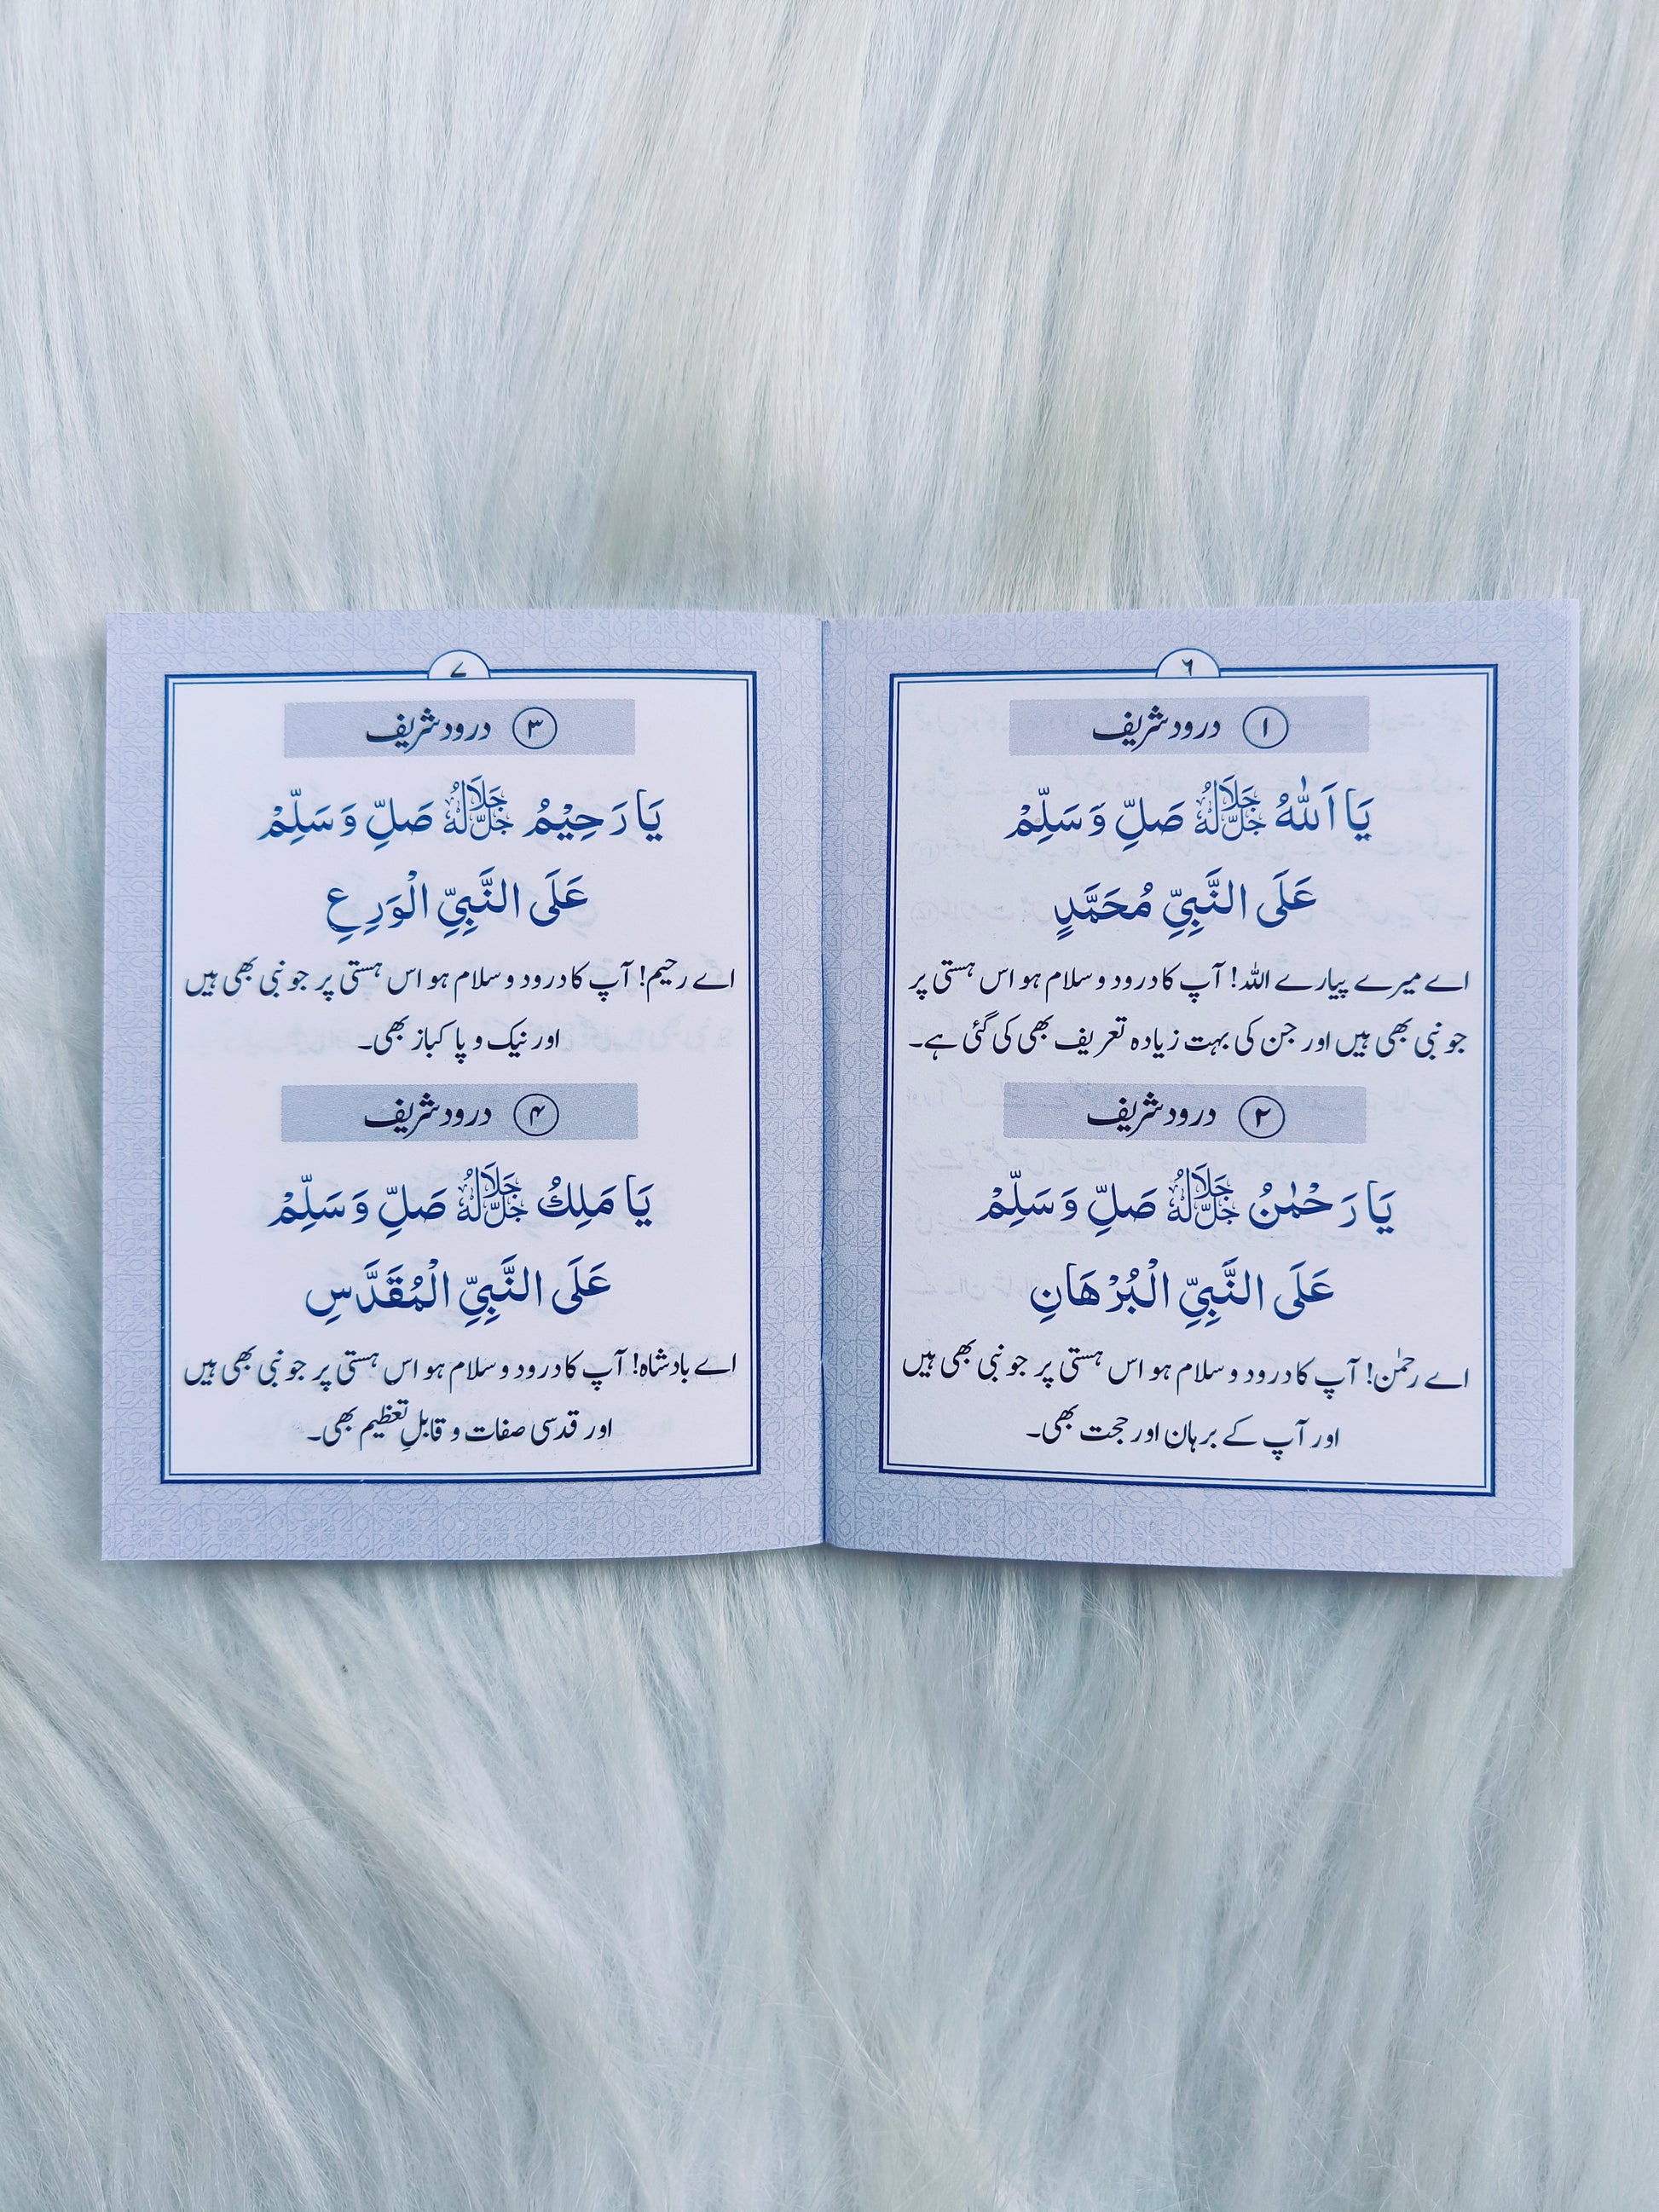 ۶
۱ درود شریف
يَا اَللّٰهُ ﷻ صَلِّ وَسَلِّمْ
عَلَى النَّبِيِّ مُحَمَّدٍ
اے میرے پیارے اللہ! آپ کا درود و سلام ہو اس ہستی پر
جو نبی بھی ہیں اور جن کی بہت زیادہ تعریف بھی کی گئی ہے۔
۲ درود شریف
يَا رَحْمٰنُ ﷻ صَلِّ وَسَلِّمْ
عَلَى النَّبِيِّ الْبُرْهَانِ
اے رحمٰن! آپ کا درود و سلام ہو اس ہستی پر جو نبی بھی ہیں
اور آپ کے برہان اور حجت بھی۔
۷
۳ درود شریف
يَا رَحِيْمُ ﷻ صَلِّ وَسَلِّمْ
عَلَى النَّبِيِّ الْوَرِعِ
اے رحیم! آپ کا درود و سلام ہو اس ہستی پر جو نبی بھی ہیں
اور نیک و پاکباز بھی۔
۴ درود شریف
يَا مَلِكُ ﷻ صَلِّ وَسَلِّمْ
عَلَى النَّبِيِّ الْمُقَدَّسِ
اے بادشاہ! آپ کا درود و سلام ہو اس ہستی پر جو نبی بھی ہیں
اور قدسی صفات و قابلِ تعظیم بھی۔